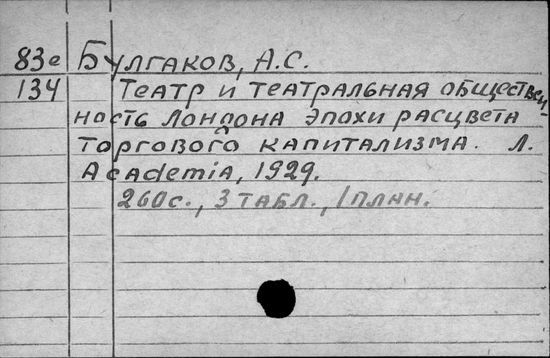 83е Булгаков, А.С.
134 Театр и театральная обществен-
ность Лондона эпохи расцвета
торгового капитализма. Л.
Academia, 1929.
260с., 3 табл., 1 план.